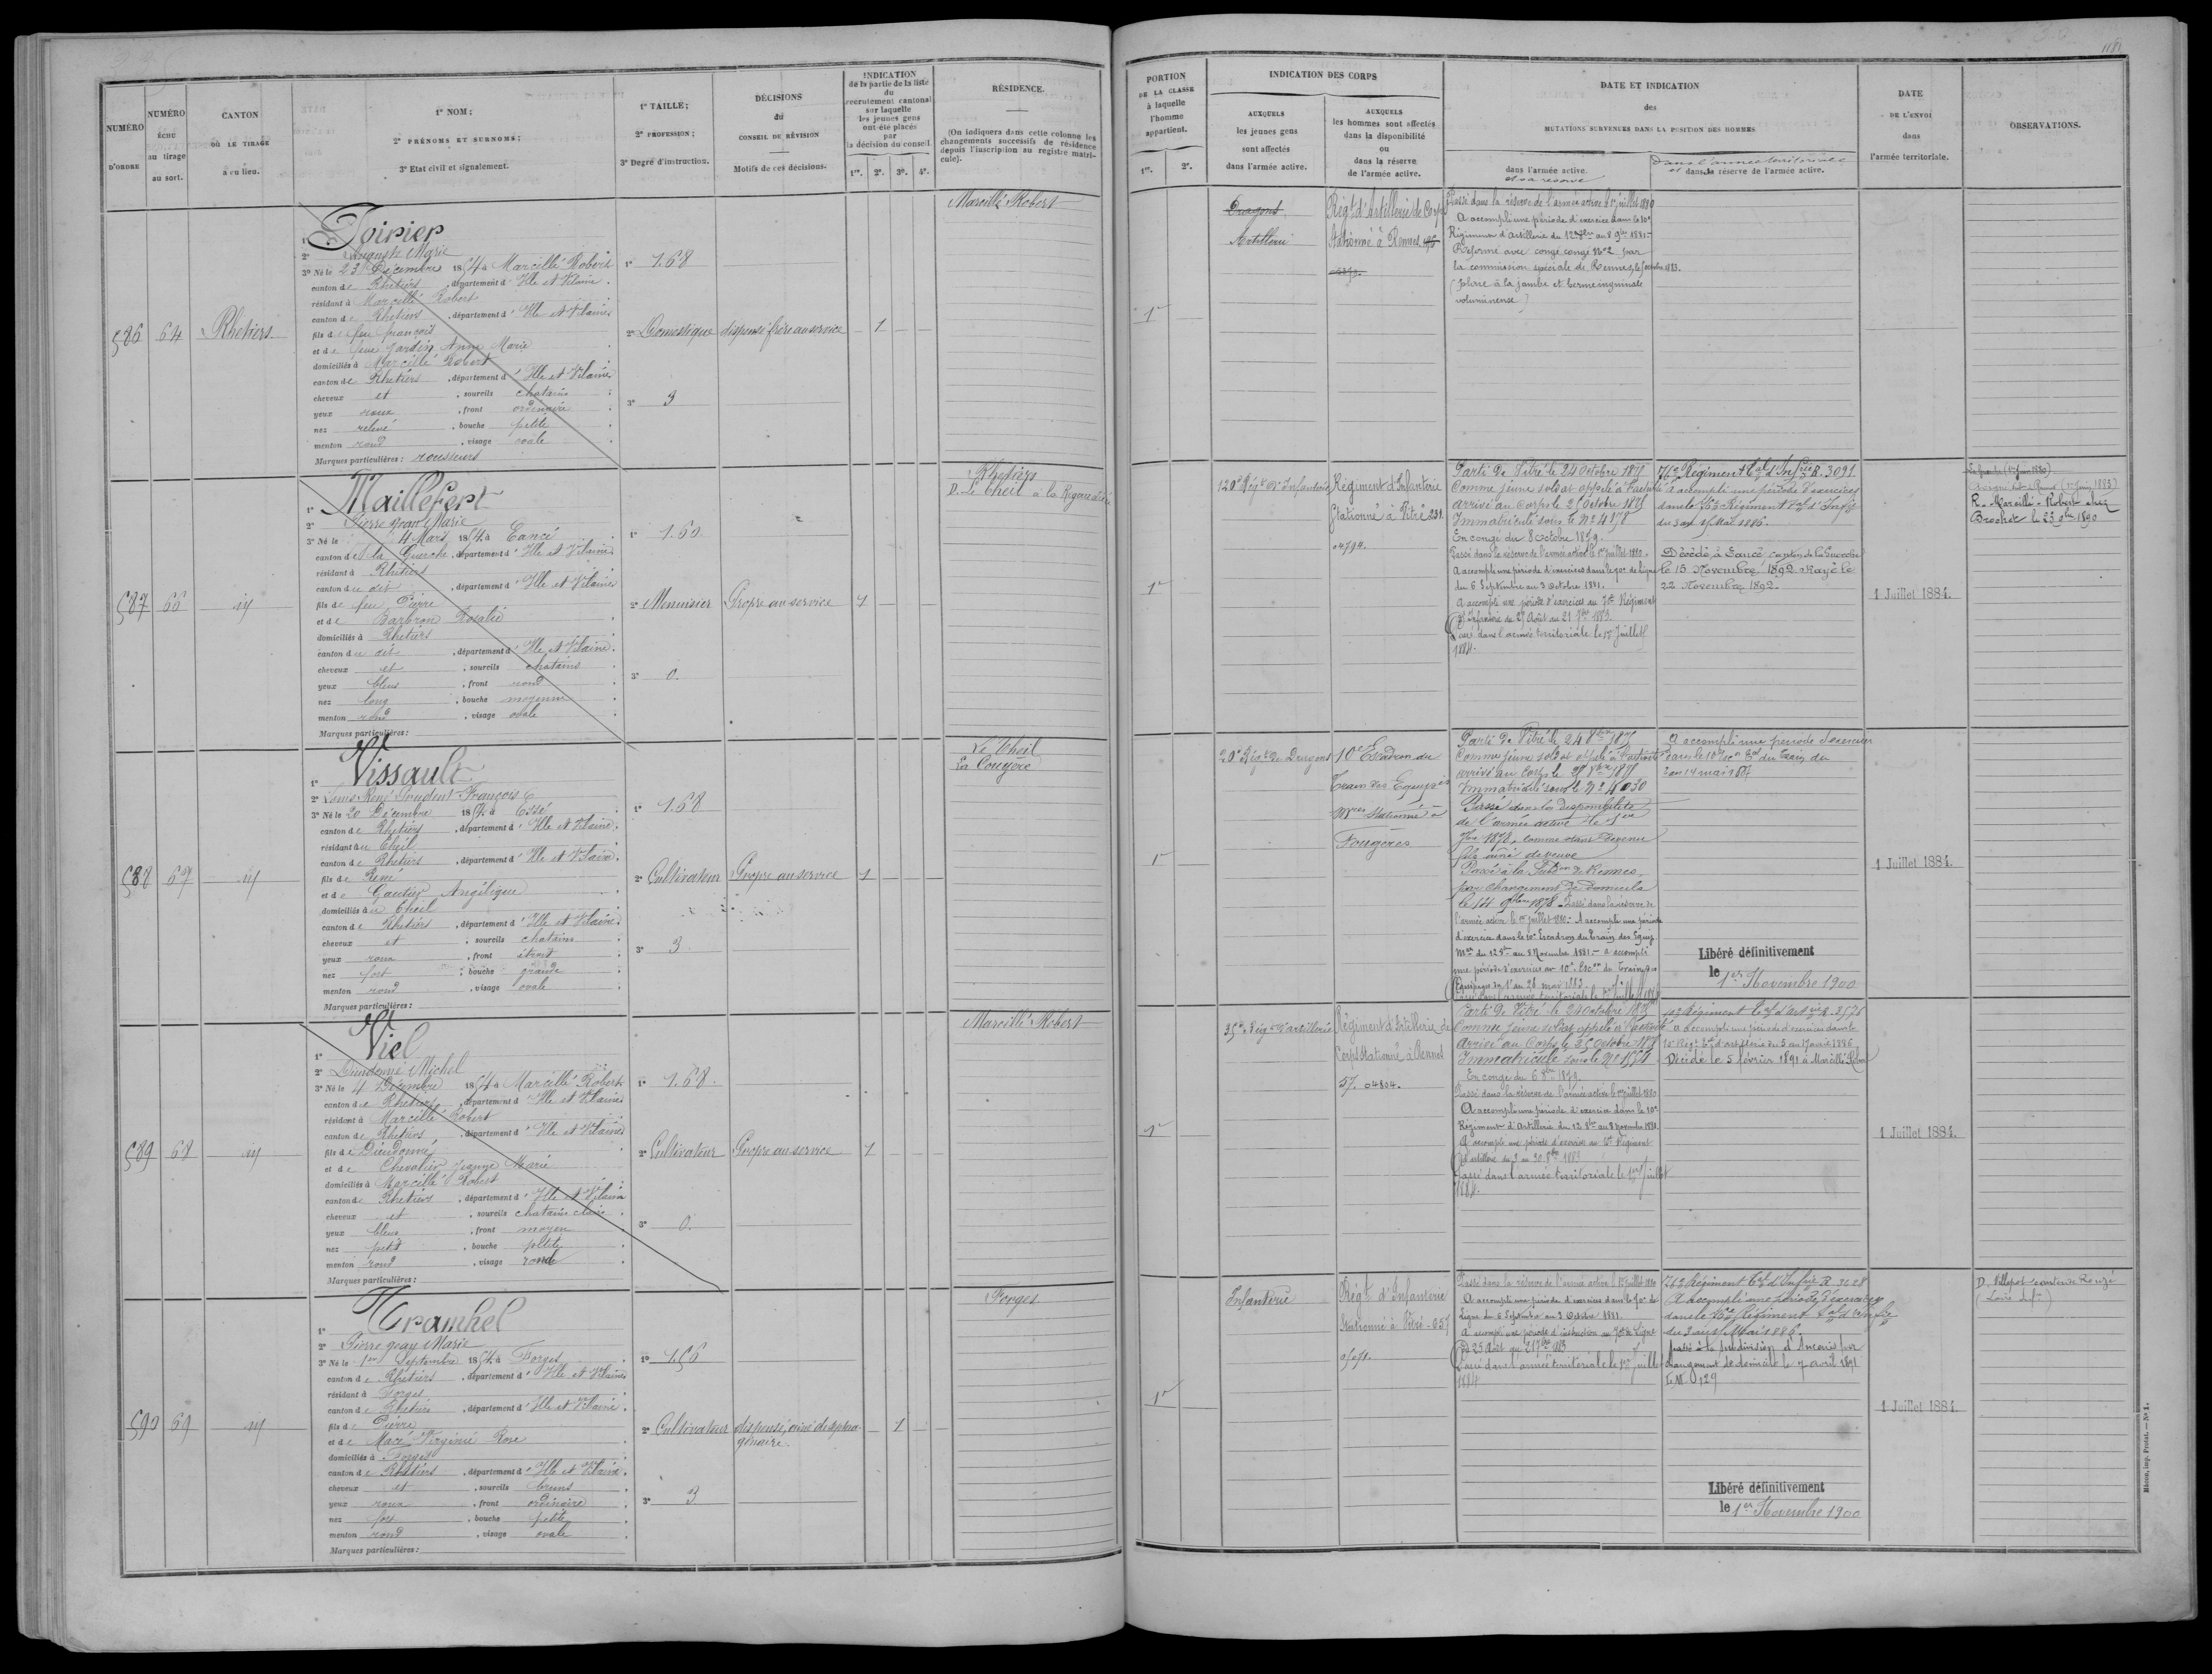 NUMÉRO
D'ORDRE
NUMÉRO
ÉCHU
au tirage
au sort.
CANTON
OÙ LE TIRAGE
a eu lieu.
1° NOM;
2° PRÉNOMS ET SURNOMS;
3° Etat civil et signalement.
1° TAILLE;
2° PROFESSION;
3° Degré d'instruction.
DÉCISIONS
du
CONSEIL DE RÉVISION
Motifs de ces décisions.
INDICATION
de la partie de la liste
du
recrutement cantonal
sur laquelle
les jeunes gens
ont été placés
par
la décision du conseil
1re. 2e. 3e. 4e.
RÉSIDENCE.
(On indiquera dans cette colonne les
changements successifs de résidence
depuis l'inscription au registre matri-
cule).
586 64 Rhetiers
1° Poirier
2° Auguste Marie
3° Né le 23 Décembre 1854 à Marcillé Robert
canton de Rhetiers, département d'Ille et Vilaine
résidant à Marcillé Robert
canton de Rhetiers, département d'Ille et Vilaine
fils de feu françois
et de feue Jardin Anne Marie
domiciliés à Marcillé Robert
canton de Rhetiers, département d'Ille et Vilaine
cheveux et, sourcils chatains
yeux roux, front ordinaire
nez relevé, bouche petite
menton rond, visage ovale
Marques particulières: rousseurs
1° 1.68
2° Domestique
3° 3
dispensé frère au service
1
Marcillé Robert
587 66 id
1° Maillefert
2° Pierre Jean Marie
3° Né le 4 Mars 1854 à Eancé
canton de la Guerche, département d'Ille et Vilaine
résidant à Rhetiers
canton du dit, département d'Ille et Vilaine
fils de feu Pierre
et de Barbron Rosalie
domiciliés à Rhetiers
canton du dit, département d'Ille et Vilaine
cheveux et, sourcils chatains
yeux bleus, front rond
nez long, bouche moyenne
menton rond, visage ovale
Marques particulières:
1° 1.60
2° Menuisier
3° 0.
Propre au service
1
Rhetiers
D. Le Theil a la
588 67 id
1° Vissault
2° Louis René Prudent François
3° Né le 20 Décembre 1854 à Essé
canton de Rhetiers, département d'Ille et Vilaine
résidant au Theil
canton de Rhetiers, département d'Ille et Vilaine
fils de René
et de Gautier Angélique
domiciliés au Theil
canton de Rhetiers, département d'Ille et Vilaine
cheveux et, sourcils chatains
yeux roux, front étroit
nez fort, bouche grande
menton rond, visage ovale
Marques particulières:
1° 1.68
2° Cultivateur
3° 3
Propre au service
1
Le Theil
La Cougère
589 68 id
1° Viel
2° Dieudonné Michel
3° Né le 4 Décembre 1854 à Marcillé Robert
canton de Rhetiers, département d'Ille et Vilaine
résidant à Marcillé Robert
canton de Rhetiers, département d'Ille et Vilaine
fils de Dieudonné
et de Chevalier Jeanne Marie
domiciliés à Marcillé Robert
canton de Rhetiers, département d'Ille et Vilaine
cheveux et, sourcils chatains clairs
yeux bleus, front moyen
nez petit, bouche petite
menton rond, visage rond
Marques particulières:
1° 1.68.
2° Cultivateur
3° 0.
Propre au service
1
Marcillé Robert
590 69 id
1° Tramhel
2° Pierre Jean Marie
3° Né le 1er Septembre 1854 à Forges
canton de Rhetiers, département d'Ille et Vilaine
résidant à Forges
canton de Rhetiers, département d'Ille et Vilaine
fils de Pierre
et de Macé Virginie Rose
domiciliés à Forges
canton de Rhetiers, département d'Ille et Vilaine
cheveux et, sourcils bruns
yeux roux, front ordinaire
nez fort, bouche petite
menton rond, visage ovale
Marques particulières:
1° 1.56
2° Cultivateur
3° 3
dispensé, ainé de septua-
génaire.
1
Forges
118
PORTION
DE LA CLASSE
à laquelle
l'homme
appartient.
1re. 2e.
INDICATION DES CORPS
AUXQUELS
les jeunes gens
sont affectés
dans l'armée active.
AUXQUELS
les hommes sont affectés
dans la disponibilité
ou
dans la réserve
de l'armée active.
DATE ET INDICATION
des
MUTATIONS SURVENUES DANS LA POSITION DES HOMMES
dans l'armée active
et sa réserve
Dans l'armée territoriale
et dans la réserve de l'armée active.
DATE
DE L'ENVOI
dans
l'armée territoriale.
OBSERVATIONS.
1re
Dragons
Artillerie
Régt d'Artillerie de Corps
Stationné à Rennes.
Passé dans la réserve de l'armée active le 1er juillet 1880
A accompli une période d'exercice dans le 10e
Régiment d'artillerie du 12 8bre au 8 9bre 1881.
Réformé avec congé congé No 2 par
la commission spéciale de Rennes, le octobre 1883.
(plaie à la jambe et hernie inguinale
volumineuse)
1re
120e Régt d'Infanterie
Régiment d'Infanterie
Stationné à Vitré 231.
04794.
Parti de Vitré le 24 Octobre 1875
Comme jeune soldat appelé à l'activité
arrivé au Corps le 25 Octobre 1875
Immatriculé sous le No 4178
En congé du 8 octobre 1879.
Passé dans la réserve de l'armée active le 1er juillet 1880.
A accompli une période d'exercices dans le 70e de ligne
du 6 Septembre au 3 Octobre 1881.
A accompli une période d'exercices au 70e Régiment
d'Infanterie du 25 Août au 21 7bre 1883.
Passé dans l'armée territoriale le 1er Juillet
1884.
76e Régiment tal d'Infrie R. 3091.
A accompli une période d'exercices
dans le 76e Régiment tal d'Infrie
du 3 au 15 Mai 1886.
Décédé à Eancé, canton de la Guerche
le 15 Novembre 1892. Rayé le
22 Novembre 1892.
1 Juillet 1884.
R. Marcillé-Robert chez
Brochet le 23 9bre 1890
1re
20e Régt de Dragons
10e Escadron du
Train des Equipages
mres stationné à
Fougères
Parti de Vitré le 24 8bre 1875
Comme jeune soldat appelé à l'activité
arrivé au Corps le 25 8bre 1875
Immatriculé sous le No 4030
Passé dans la disponibilité
de l'armée active le 1er
7bre 1878, comme étant devenu
fils ainé de veuve
Passé à la Subdon de Rennes
par changement de Domicile
le 14 9bre 1878. Passé dans la réserve de
l'armée active le 1er juillet 1880. A accompli une période
d'exercice dans le 10e Escadron du Train des Equip.
Mres du 12 8bre au 8 Novembre 1881. a accompli
une période d'exercices au 10e Escon du Train des
Equipages du 1er au 28 mai 1883
Passé dans l'armée territoriale le 1er Juillet 1884
A accompli une période d'exercices
dans le 10e Escon Tal du Train du
3 au 14 mai 1887
Libéré définitivement
le 1er Novembre 1900
1 Juillet 1884.
1re
35e Régt d'artillerie
Régiment d'Artillerie de
Corps Stationné à Rennes
57. 04804.
Parti de Vitré le 24 octobre 1875
Comme jeune soldat appelé à l'activité
Arrivé au Corps le 25 octobre 1875
Immatriculé sous le No 1554
En congé du 6 8bre 1879
Passé dans la réserve de l'armée active le 1er juillet 1880
A accompli une période d'exercice dans le 10e
Régiment d'Artillerie du 12 8bre au 8 Novembre 1881.
A accompli une période d'exercices au 10e Régiment
d'artillerie du 3 au 30 8bre 1883
Passé dans l'armée territoriale le 1er Juillet
1884.
10e Régiment tal d'artrie R. 3576
A accompli une période d'exercices dans le
10e Régt tal d'artillerie du 5 au 17 avril 1886
Décédé le 5 février 1891 à Marcillé Robert
1 Juillet 1884.
1re
Infanterie
Régt d'Infanterie
Stationné à Vitré - 657
Passé dans la réserve de l'armée active le 1er Juillet 1880
A accompli une période d'exercices dans le 70e de
Ligne du 6 Septembre au 3 Octobre 1881.
A accompli une période d'instruction au 70e de Ligne
du 25 Août au 21 7bre 1883
Passé dans l'armée territoriale le 1er Juillet
1884
76e Régiment tal d'Infrie R 3028
A accompli une période d'exercices
dans le 76e Régiment tal d'Infrie
du 3 au 15 Mai 1886.
passé à la subdivision d'Ancenis par
changement de domicile le 7 avril 1891
Libéré définitivement
le 1er Novembre 1900
1 Juillet 1884.
D. Villepot canton de Rougé
(Loire Infre)
Mâcon, imp. Protat. — No 1.